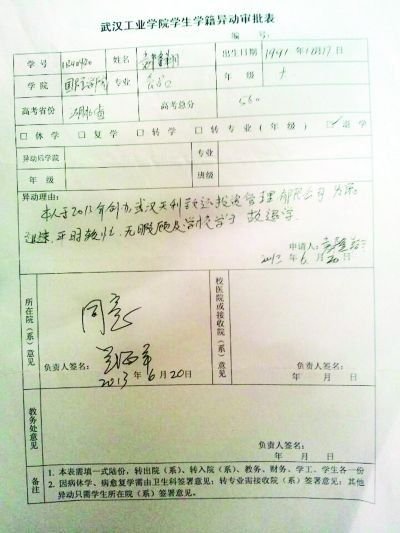 武汉工业学院学生学籍异动审批表
编 号:
学 号 姓名 出生日期 1991年12月17日
学 院 国际学院 专业 年 级 大
高考省份 湖北省 高考总分 560
□休学 □复学 □转学 □转专业(年级) ☑退学
异动后学院 专业
年 级 班级
异动理由:
本人于2013年创办武汉天利 投资管理有限公司
平时较忙,无暇顾及学校学习 故退学。
申请人:
2013年6月20日
所在院(系)意见
同意
负责人签名:
2013年6月20日
校医院或接收院(系)意见
负责人签名:
年 月 日
教务处意见
负责人签名:
年 月 日
备注
1. 本表需填一式陆份,转出院(系)、转入院(系)、教务、财务、学工、学生各一份
2. 因病休学、病愈复学需由卫生科签署意见;转专业需接收院(系)签署意见;其他
异动只需学生所在院(系)签署意见。